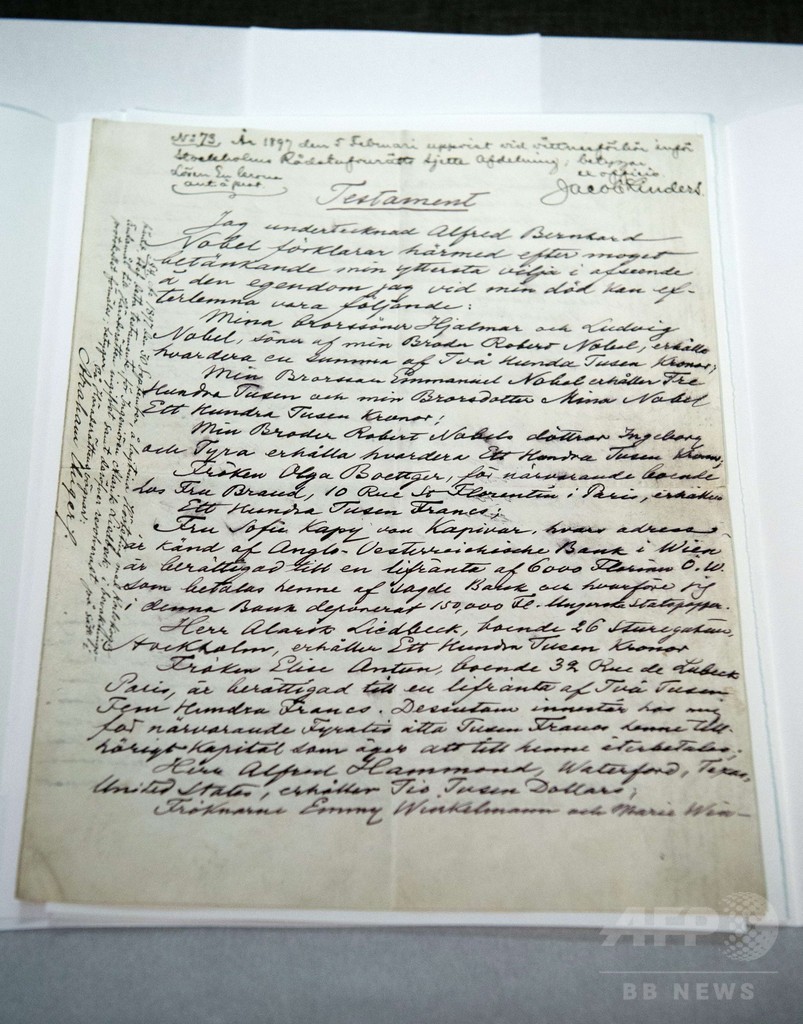 No 73, År 1897 den 5 Februari uppvist vid vittnesförhör inför
Stockholms Rådstufvurätts sjette afdelning; betygar
Lösen En krona
ex officio
Jacob
Testament
Jag undertecknad Alfred Bernhard
Nobel förklarar härmed efter moget
betänkande min yttersta vilja i afseende
å den egendom jag vid min död kan ef-
terlemna vara följande:
Mina Brorsöner Hjalmar och Ludvig
Nobel, söner af min Broder Robert Nobel, erhålla
hvardera en summa af Två Hundra Tusen Kronor;
Min Brorson Emmanuel Nobel erhåller Tre
Hundra Tusen och min Brorsdotter Mina Nobel
Ett Hundra Tusen Kronor;
Min Broder Robert Nobels döttrar Ingeborg
och Tyra erhålla hvardera Ett Hundra Tusen Kronor;
Fröken Olga Boettger, för närvarande boende
hos Fru Brand, 10 Rue St Florentin i Paris, erhåller
Ett Hundra Tusen Francs;
Fru Sofie Kapy von Kapivar, hvars adress
är känd af Anglo-Oesterreichische Bank i Wien
är berättigad till en lifränta af 6000 Florins Ö.W.
som betalas henne af sagde Bank och hvarföre jag
i denna Bank deponerat 150,000 Fl. i Ungerska Statspapper.
Herr Alarik Liedbeck, boende 26 Sturegatan,
Stockholm, erhåller Ett Hundra Tusen Kronor
Fröken Elise Antun, boende 32 Rue de Lubeck
Paris, är berättigad till en lifränta af Två Tusen
Fem Hundra Francs. Dessutom innestår hos mig
för närvarande Fyratio åtta Tusen Francs henne till-
hörigt Kapital som äger att till henne återbetalas;
Herr Alfred Hammond, Waterford, Texas,
United States, erhåller Tio Tusen Dollars;
Fröknarne Emmy Winkelmann och Marie Win-
AFP
BB NEWS